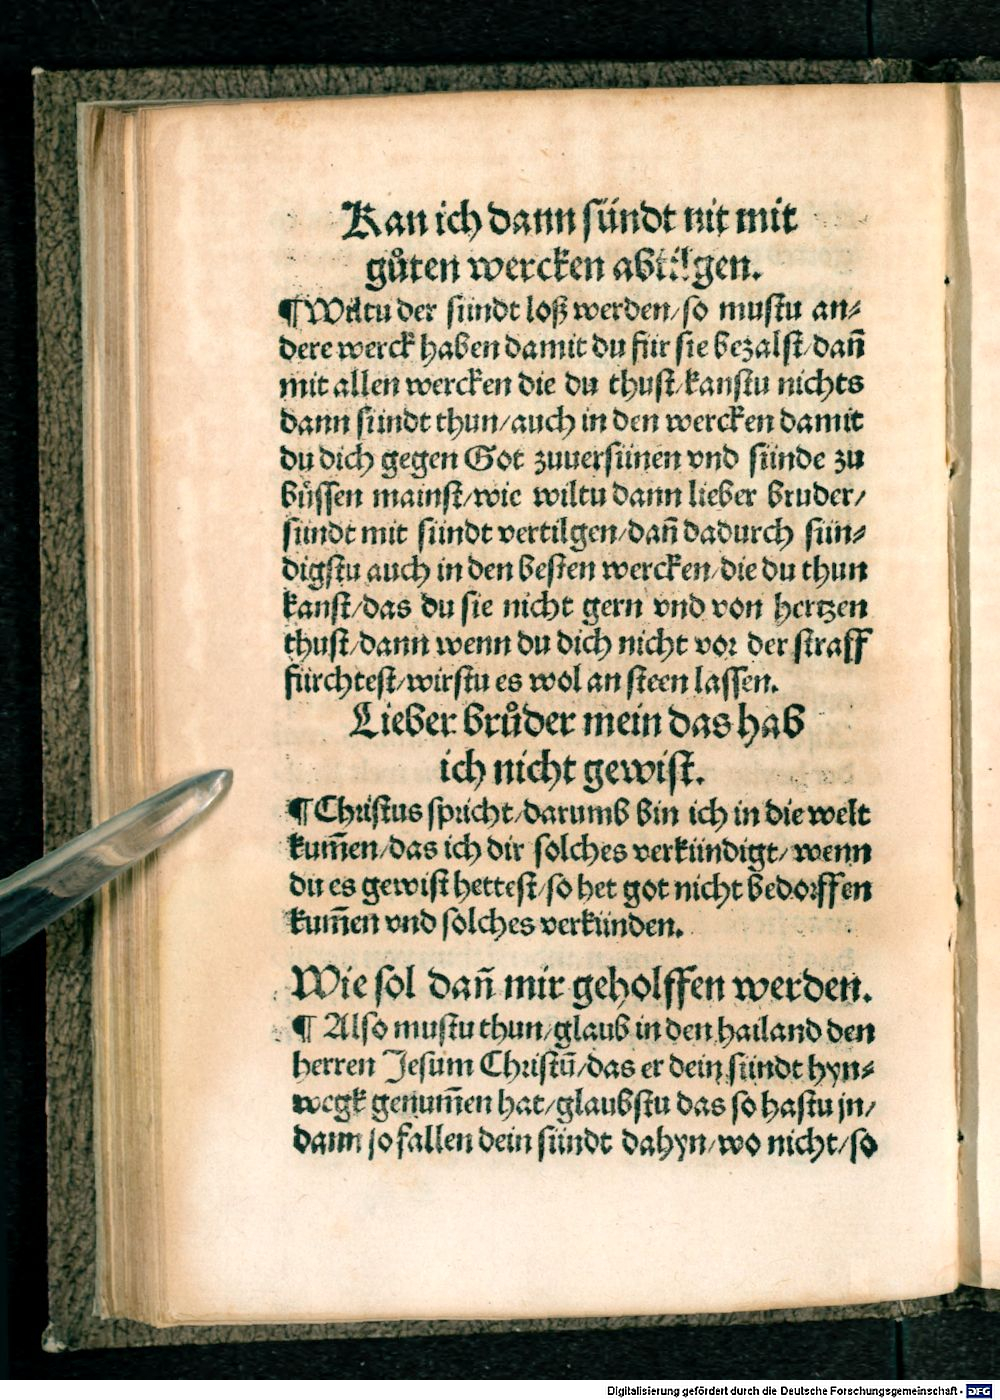 Kan ich dann sündt nit mit
gůten wercken abtilgen.
¶ Wiltu der sündt loß werden/so mustu an⸗
dere werck haben damit du für sie bezalst/dañ
mit allen wercken die du thust/kanstu nichts
dann sündt thun/auch in den wercken damit
du dich gegen Got zuuersünen vnd sünde zu
bůssen mainst/wie wiltu dann lieber bruder/
sündt mit sündt vertilgen/dañ dadurch sün⸗
digstu auch in den besten wercken/die du thun
kanst/das du sie nicht gern vnd von hertzen
thust/dann wenn du dich nicht vor der straff
fürchtest/wirstu es wol an steen lassen.
Lieber brůder mein das hab
ich nicht gewist.
¶ Christus spricht/darumb bin ich in die welt
kum̃en/das ich dir solches verkündigt/wenn
du es gewist hettest/so het got nicht bedorffen
kum̃en vnd solches verkünden.
Wie sol dañ mir geholffen werden.
¶ Also mustu thun/glaub in den hailand den
herren Jesum Christũ/das er dein sündt hyn⸗
wegk genum̃en hat/glaubstu das so hastu jn/
dann so fallen dein sündt dahyn/wo nicht/so
Digitalisierung gefördert durch die Deutsche Forschungsgemeinschaft - DFG